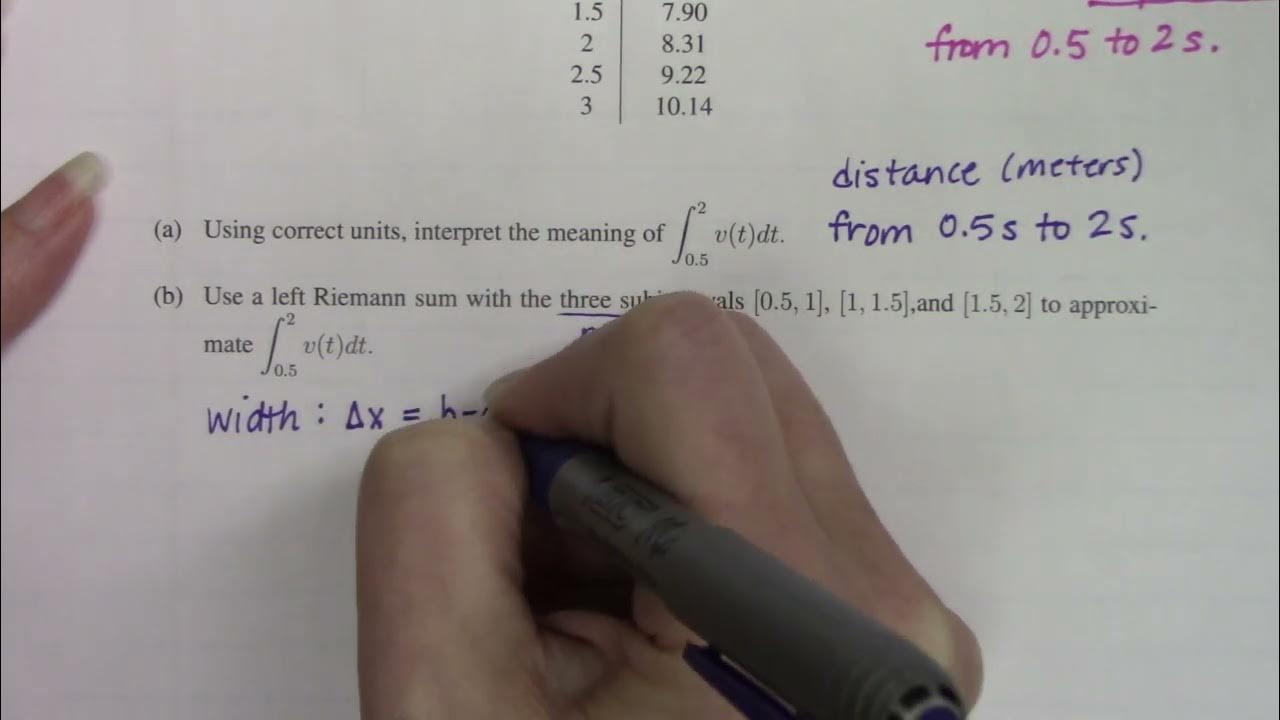 1.5 7.90
2 8.31
from 0.5 to 2 s.
2.5 9.22
3 10.14
distance (meters)
(a) Using correct units, interpret the meaning of ∫_{0.5}^{2} v(t)dt.
from 0.5 s to 2 s.
(b) Use a left Riemann sum with the three [0.5, 1], [1, 1.5],and [1.5, 2] to approxi-
mate ∫_{0.5}^{2} v(t)dt.
width : Δx =